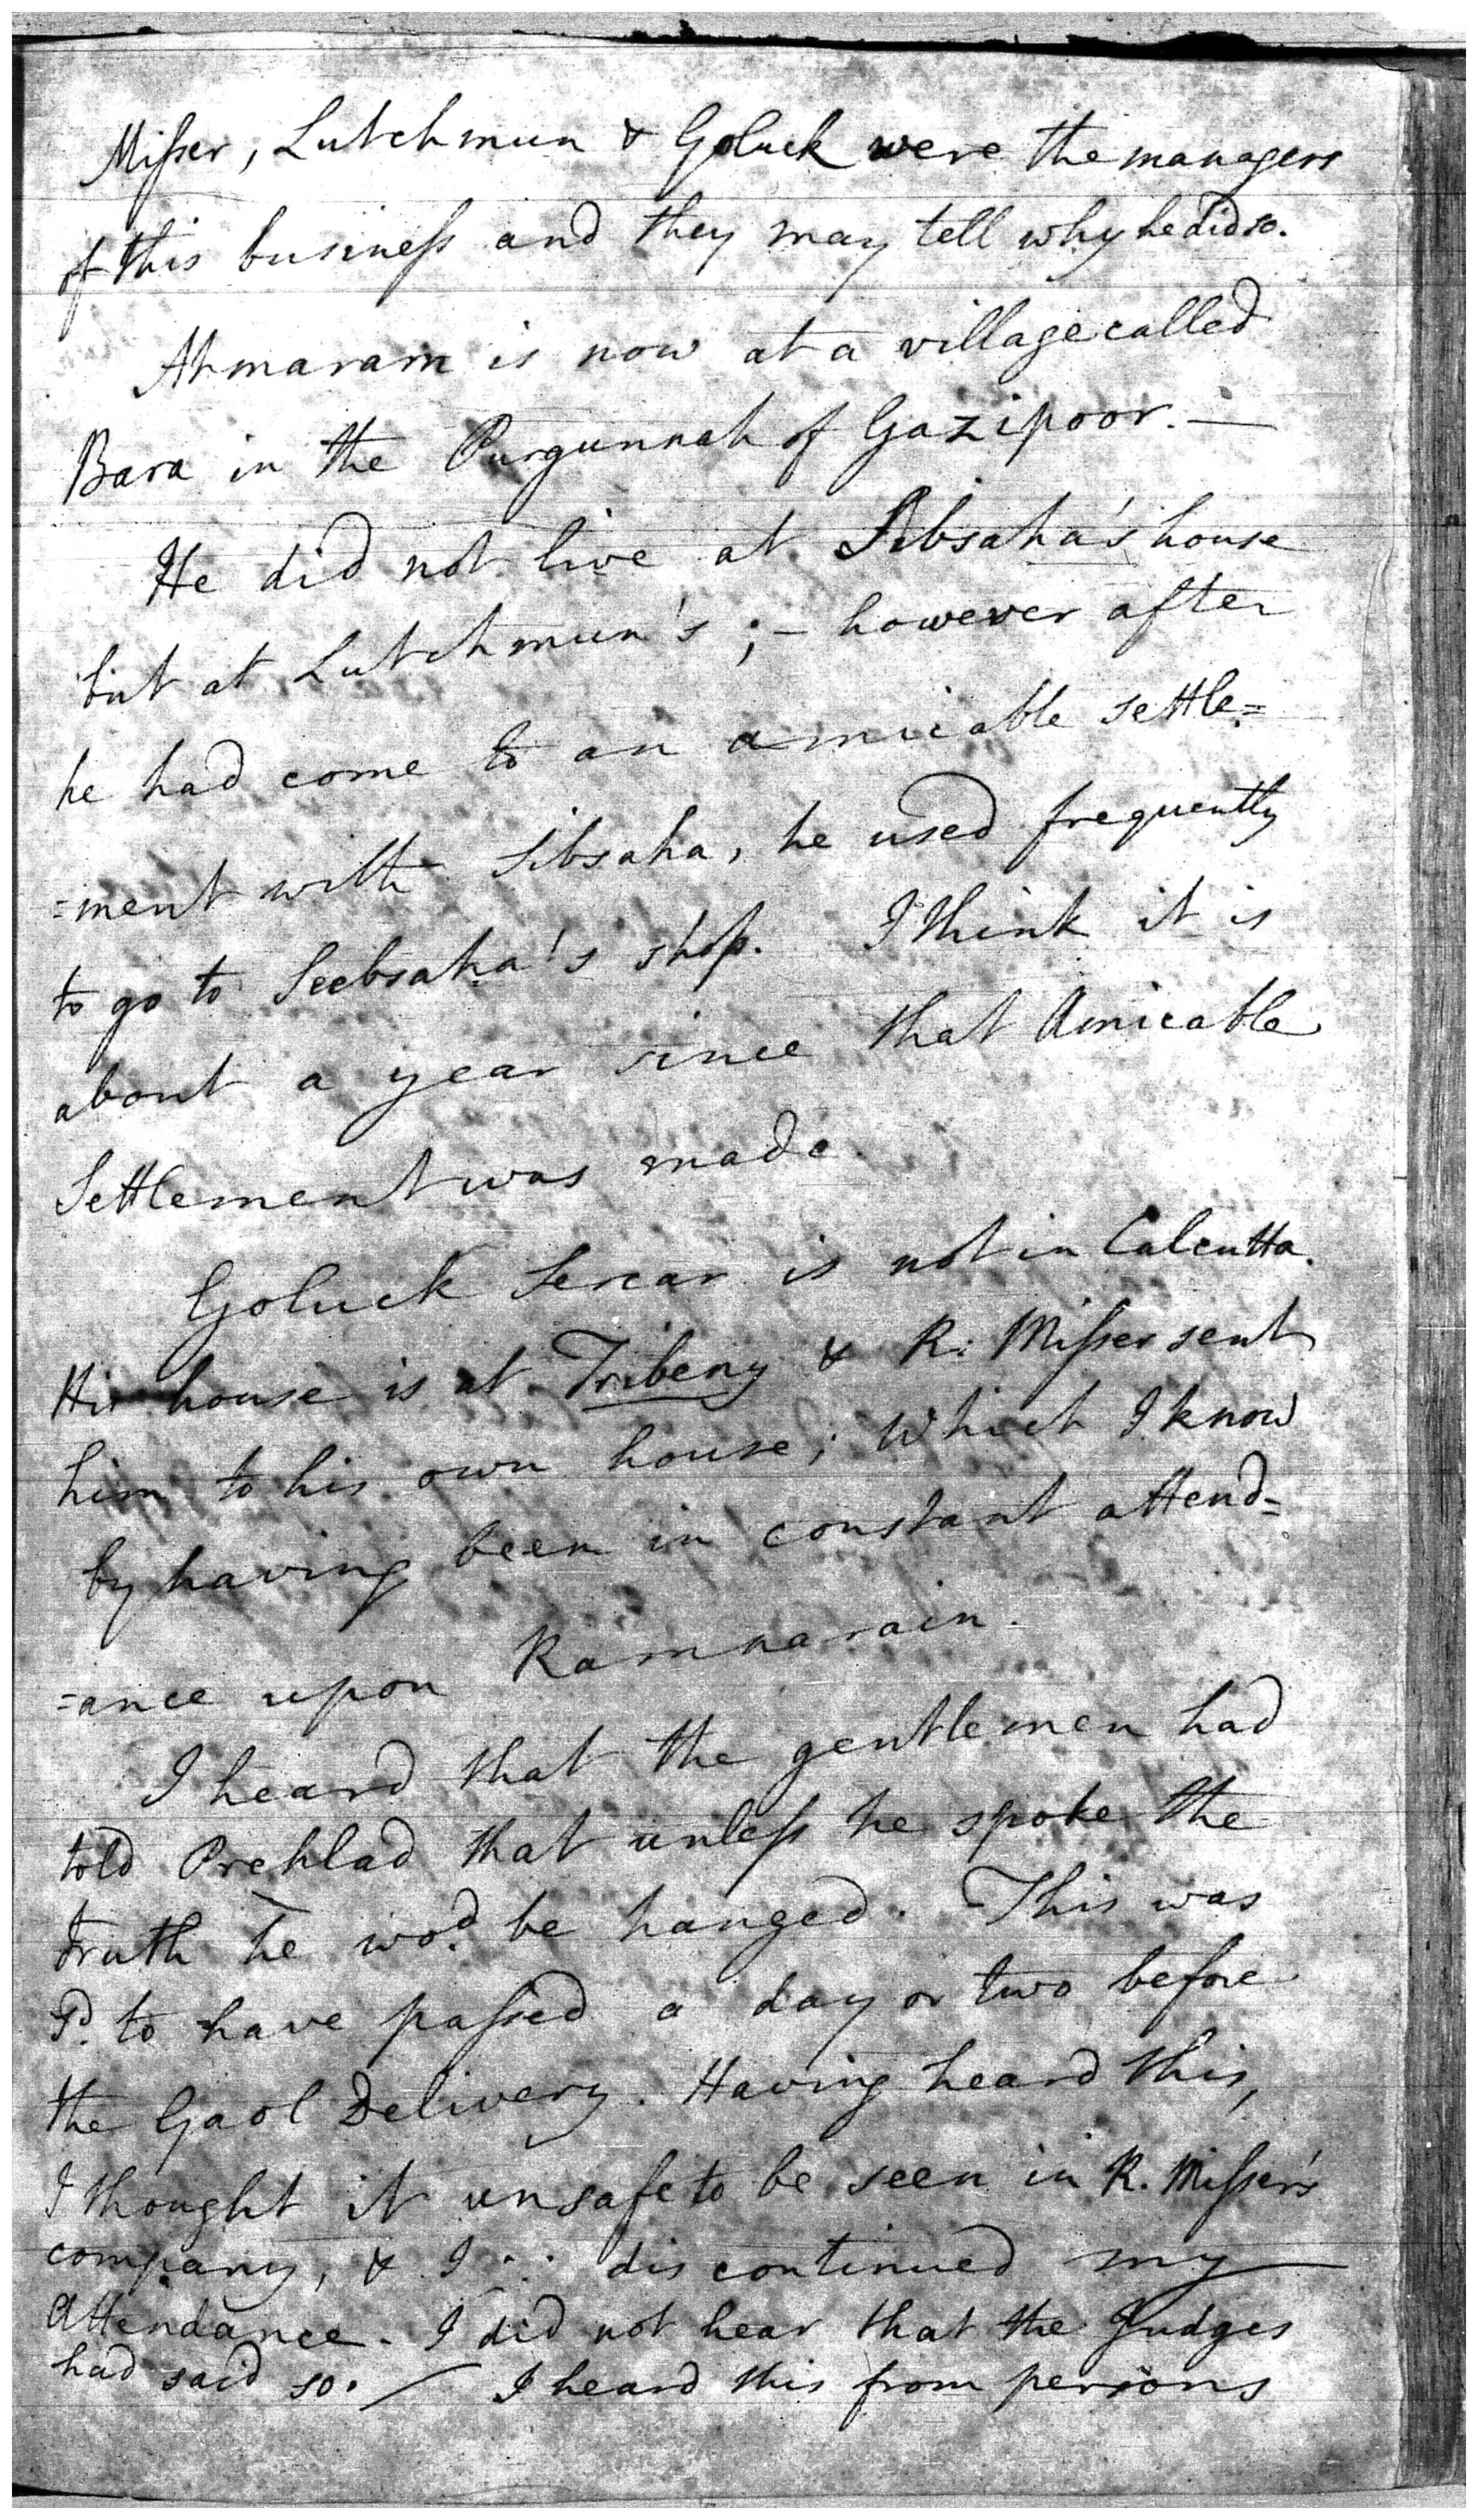 Miſser, Lutchmun & Goluck were the managers
of this buſineſs and they may tell why he did so.
Atmaram is now at a village called
Bara in the Purgunnah of Gazipoor. —
He did not live at Sibsaha's house
but at Lutchmun's ; – however after
he had come to an amicable settle=
=ment with Sibsaha, he used frequently
to go to Seebsaha's shop. I think it is
about a year since that Amicable
Settlement was made.
Goluck Sercar is not in Calcutta.
His house is at Tribeny & R. Miſser sent
him to his own house; which I know
by having been in constant attend=
=ance upon Ramnarain.
I heard that the gentlemen had
told Prehlad that unleſs he spoke the
truth he wo.d be hanged. This was
Sd. to have paſsed a day or two before
the Gaol Delivery. Having heard this,
I thought it unsafe to be seen in R. Miſser's
company, & I ∴ discontinued my
Attendance. I did not hear that the Judges
had said so. / I heard this from persons